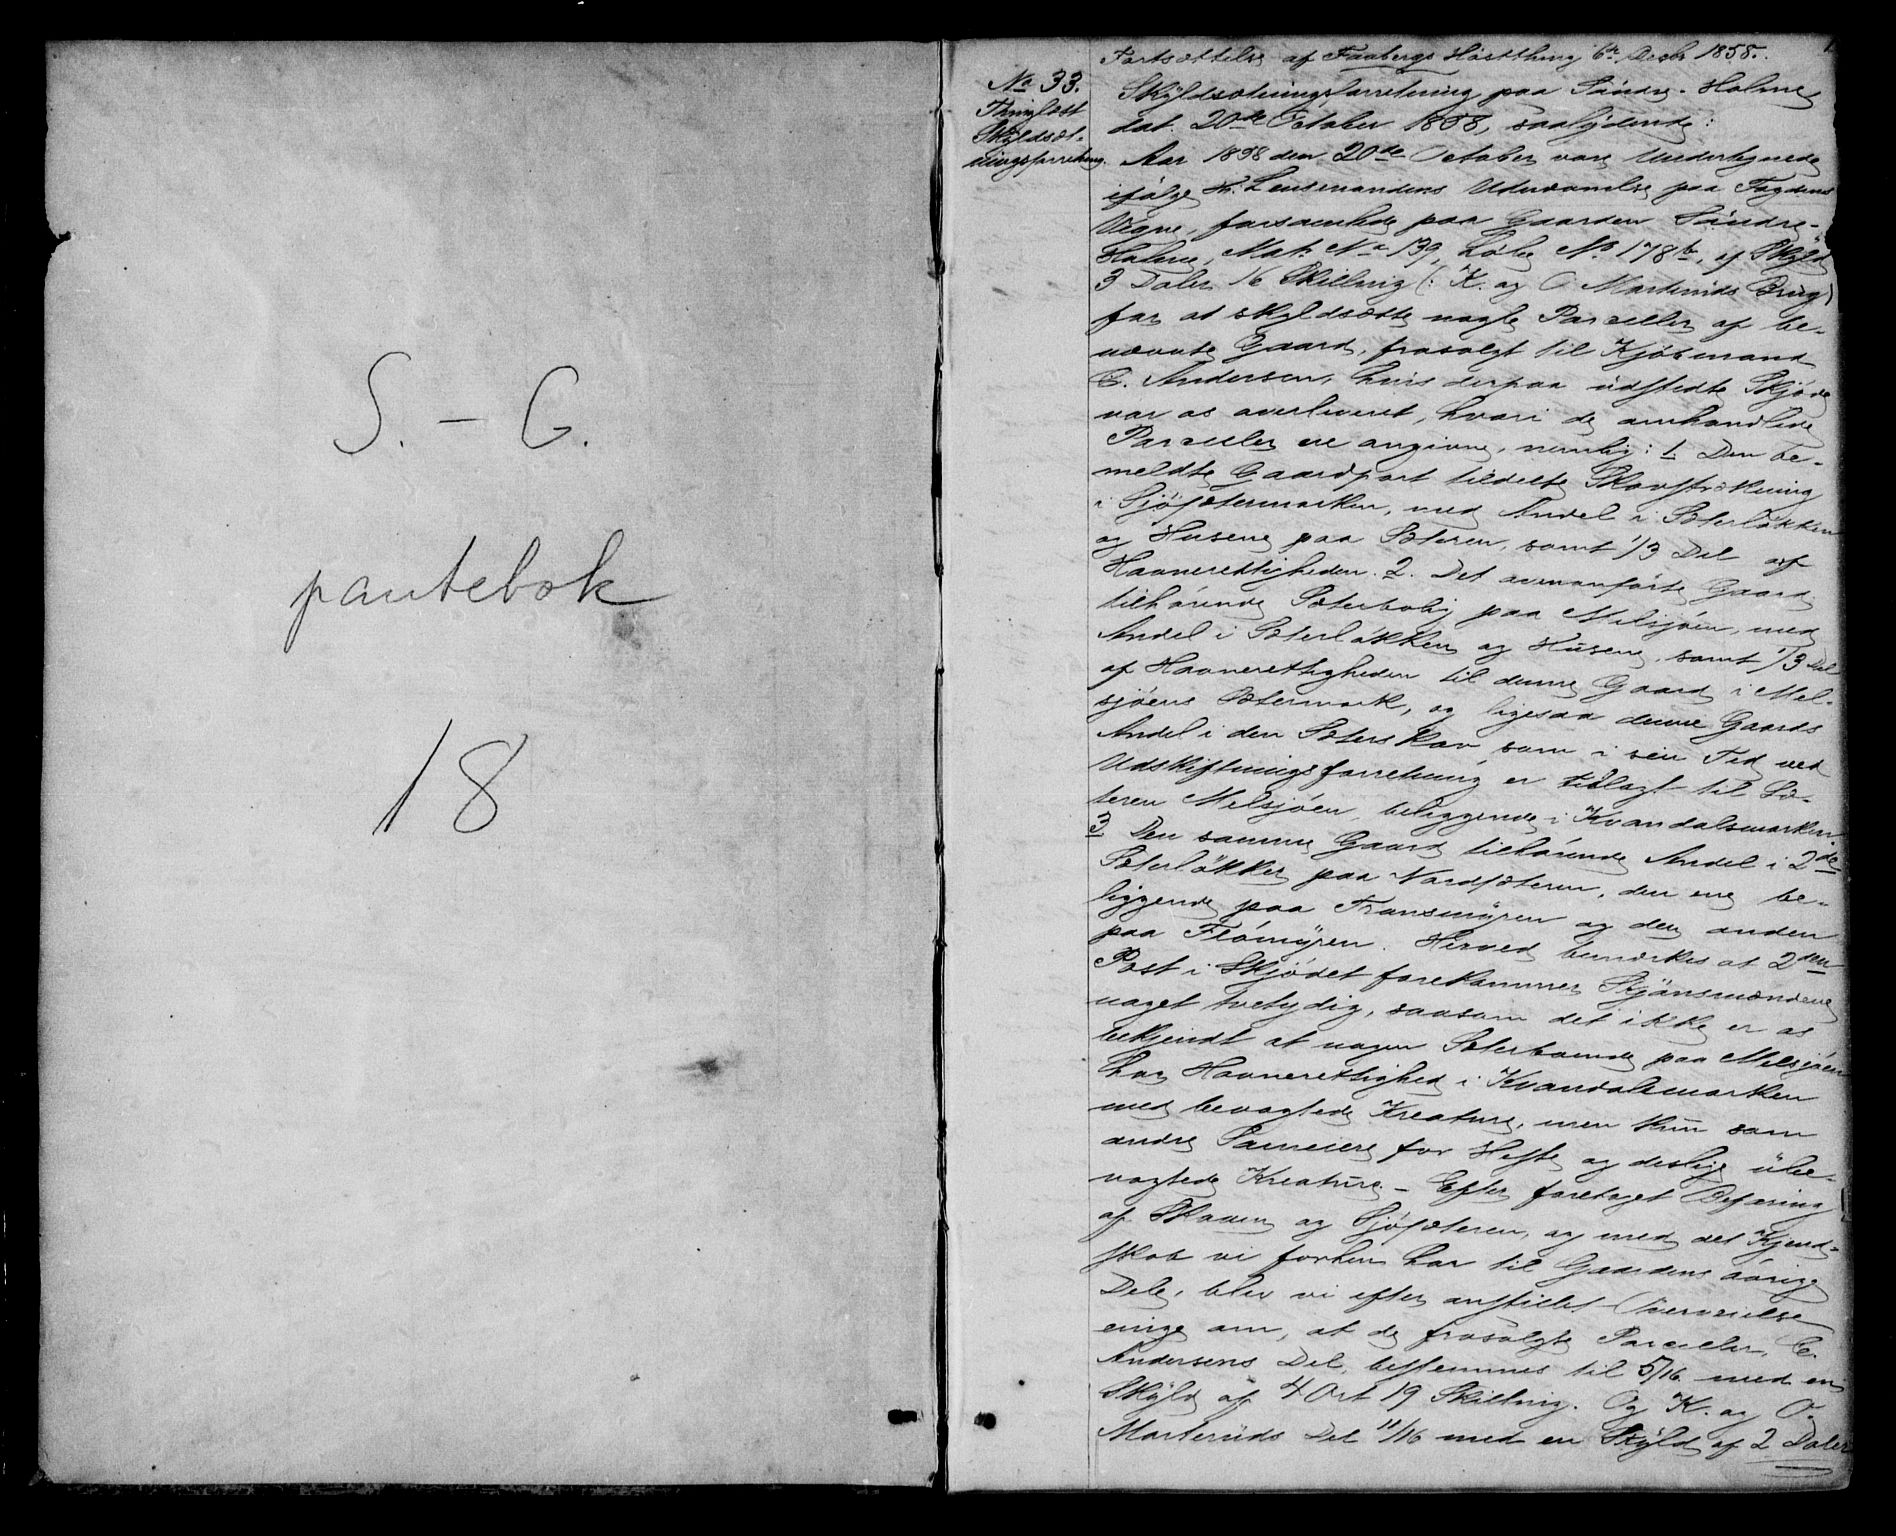 S. – G.
pantebok
18
1.
Fortsættelse af Faabergs Høstthing 6te Decbr 1858.
No 33.
Thinglæst
Skyldsæt-
ningsforretning.
Skyldsætningsforretning paa Søndre-Holme
dat. 20de October 1858, saalydende:
Aar 1858 den 20de October vare Undertegnede
ifølge Hr. Lensmandens Udnævnelse paa Fogdens
Vegne, forsamlede paa Gaarden Søndre-
Holme, Matr. No 139, Løbe No 178b, af Skyld
3 Daler 16 Skilling (: K. og O Marterüds Brug)
for at skyldsætte nogle Parceller af be-
nævnte Gaard, frasolgt til Kjøbmand
C. Andersen, hvis derpaa udstedte Skjøde
var os overleveret, hvori de omhandlede
Parceller ere angivne, nemlig: 1 Den be-
meldte Gaardpart tildelte Skovstrækning
i Sjøsætermarken, med Andel i Sæterløkken
og Husene paa Sæteren, samt 1/3 Del af
Havnerettigheden. 2. Det ovenanførte Gaard
tilhørende Sæterbolig paa Melsjøen, med
Andel i Sæterløkken og Husene, samt 1/3 Del
af Havnerettigheden til denne Gaard i Mel-
sjøens Sætermark, og ligesaa denne Gaards
Andel i den Sæterskov som i sin Tid ved
Udskiftningsforretning er tillagt til Sæ-
teren Melsjøen, beliggende i Kvandalsmarken
3 Den samme Gaard tilhørende Andel i 2de
Sæterløkker paa Nordsæteren, den ene be-
liggende paa Transmyren og den anden
paa Fløimyren. Herved bemærkes at 2den
Post i Skjødet forekommer Skjønsmændene
noget tvetydig, saasom det ikke er os
bekjendt at nogen Sæterboende paa Melsjøen
har Havnerettighed i Kvandalsmarken
med bevogtede Kreature, men kun som
andre Sameiere for Heste og deslige übe-
vogtede Kreature – Efter foretaget Befaring
af Skoven og Sjøsæteren, og med det Kjend-
skab vi forhen har til Gaardens øvrige
Dele, blev vi efter anstillet Overveielse
enige om, at de frasolgte Parceller, C.
Andersens Del, bestemmes til 5/16 med en
Skyld af 4 Ort 19 Skilling. Og K. og O.
Marterüds Del 11/16 med en Skyld af 2 Daler